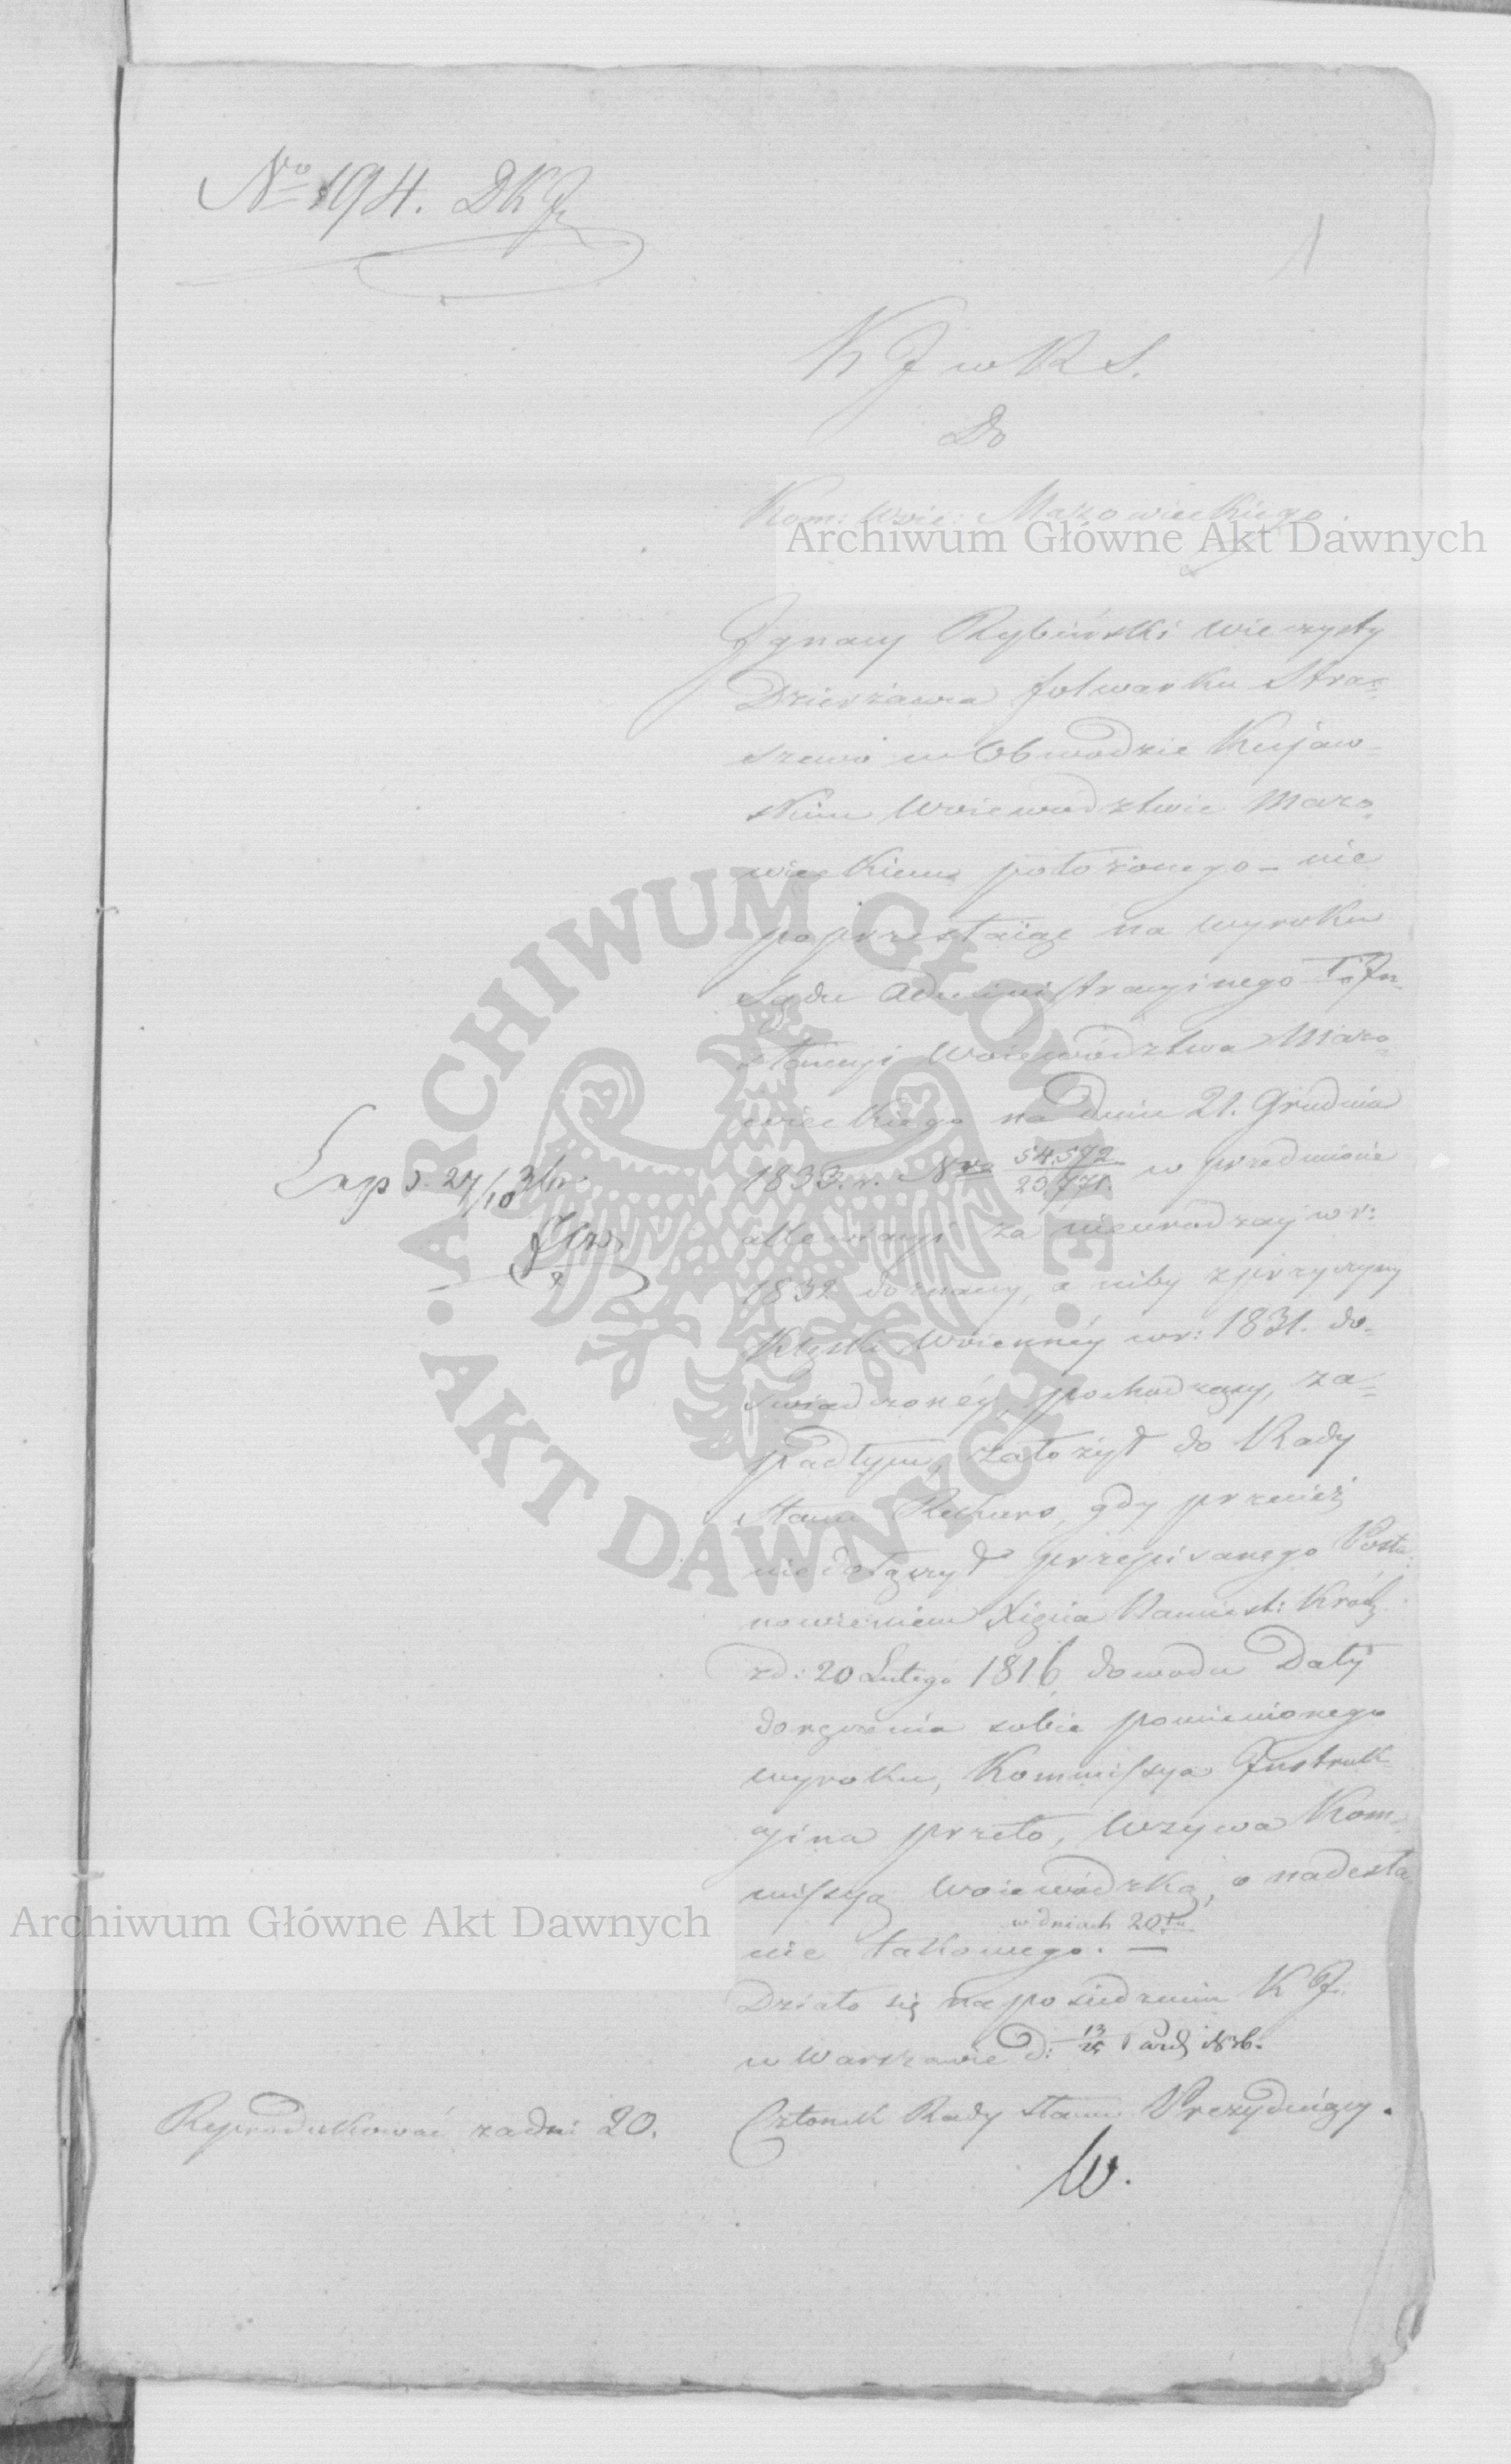 Nro 194. DKJ
1
K J w R S.
Do
Kom: Wnie: Mazowieckiego.
Archiwum Główne Akt Dawnych
Ignacy Rybiński wieczysty
Dzierżawca folwarku Stra=
szewo w Obwodzie Kujaw=
skim Woiewodztwie Mazo=
wieckiem położonego – nie
poprzestaiąc na wyroku
Sądu Administracyinego I. In=
stancyi Woiewództwa Mazo=
wieckiego na dniu 21. Grudnia
1833. r. Nro 54.592/23.771. w przedmiocie
allewiacyi za nieurodzay w r:
1832 doznany, a niby z przyczyny
Klęski Woiennéy w r: 1831. do=
świadczonéy, pochodzący, za=
padłym, założył do Rady
Stanu Rekurs, gdy przecież
nie dołączył przepisanego Posta=
nowieniem Xięcia Namiest: Król:
z d: 20 Lutego 1816 dowodu Daty
doręczenia sobie pomienionego
wyroku, Kommissya Instruk=
cyina przeto, wzywa Kom=
missyą Woiewódzką, o nadesła
w dniach 20tu
nie takowego. —
Działo się na posiedzeniu K J.
w Warszawie d: 13/25 Paźd 1836.
Członek Rady Stanu Prezyduiący.
W.
Exp d. 27/10
Reprodukować za dni 20.
Archiwum Główne Akt Dawnych
ARCHIWUM GŁÓWNE • AKT DAWNYCH •